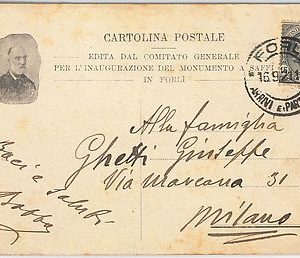 CARTOLINA POSTALE
EDITA DAL COMITATO GENERALE
PER L'INAUGURAZIONE DEL MONUMENTO A SAFFI
IN FORLÌ
FORLÌ
16.9.21
ARRIVI E PAR
Alla famiglia
Ghetti Giuseppe
Via marcona 31
Milano
Baci e saluti
Babbo